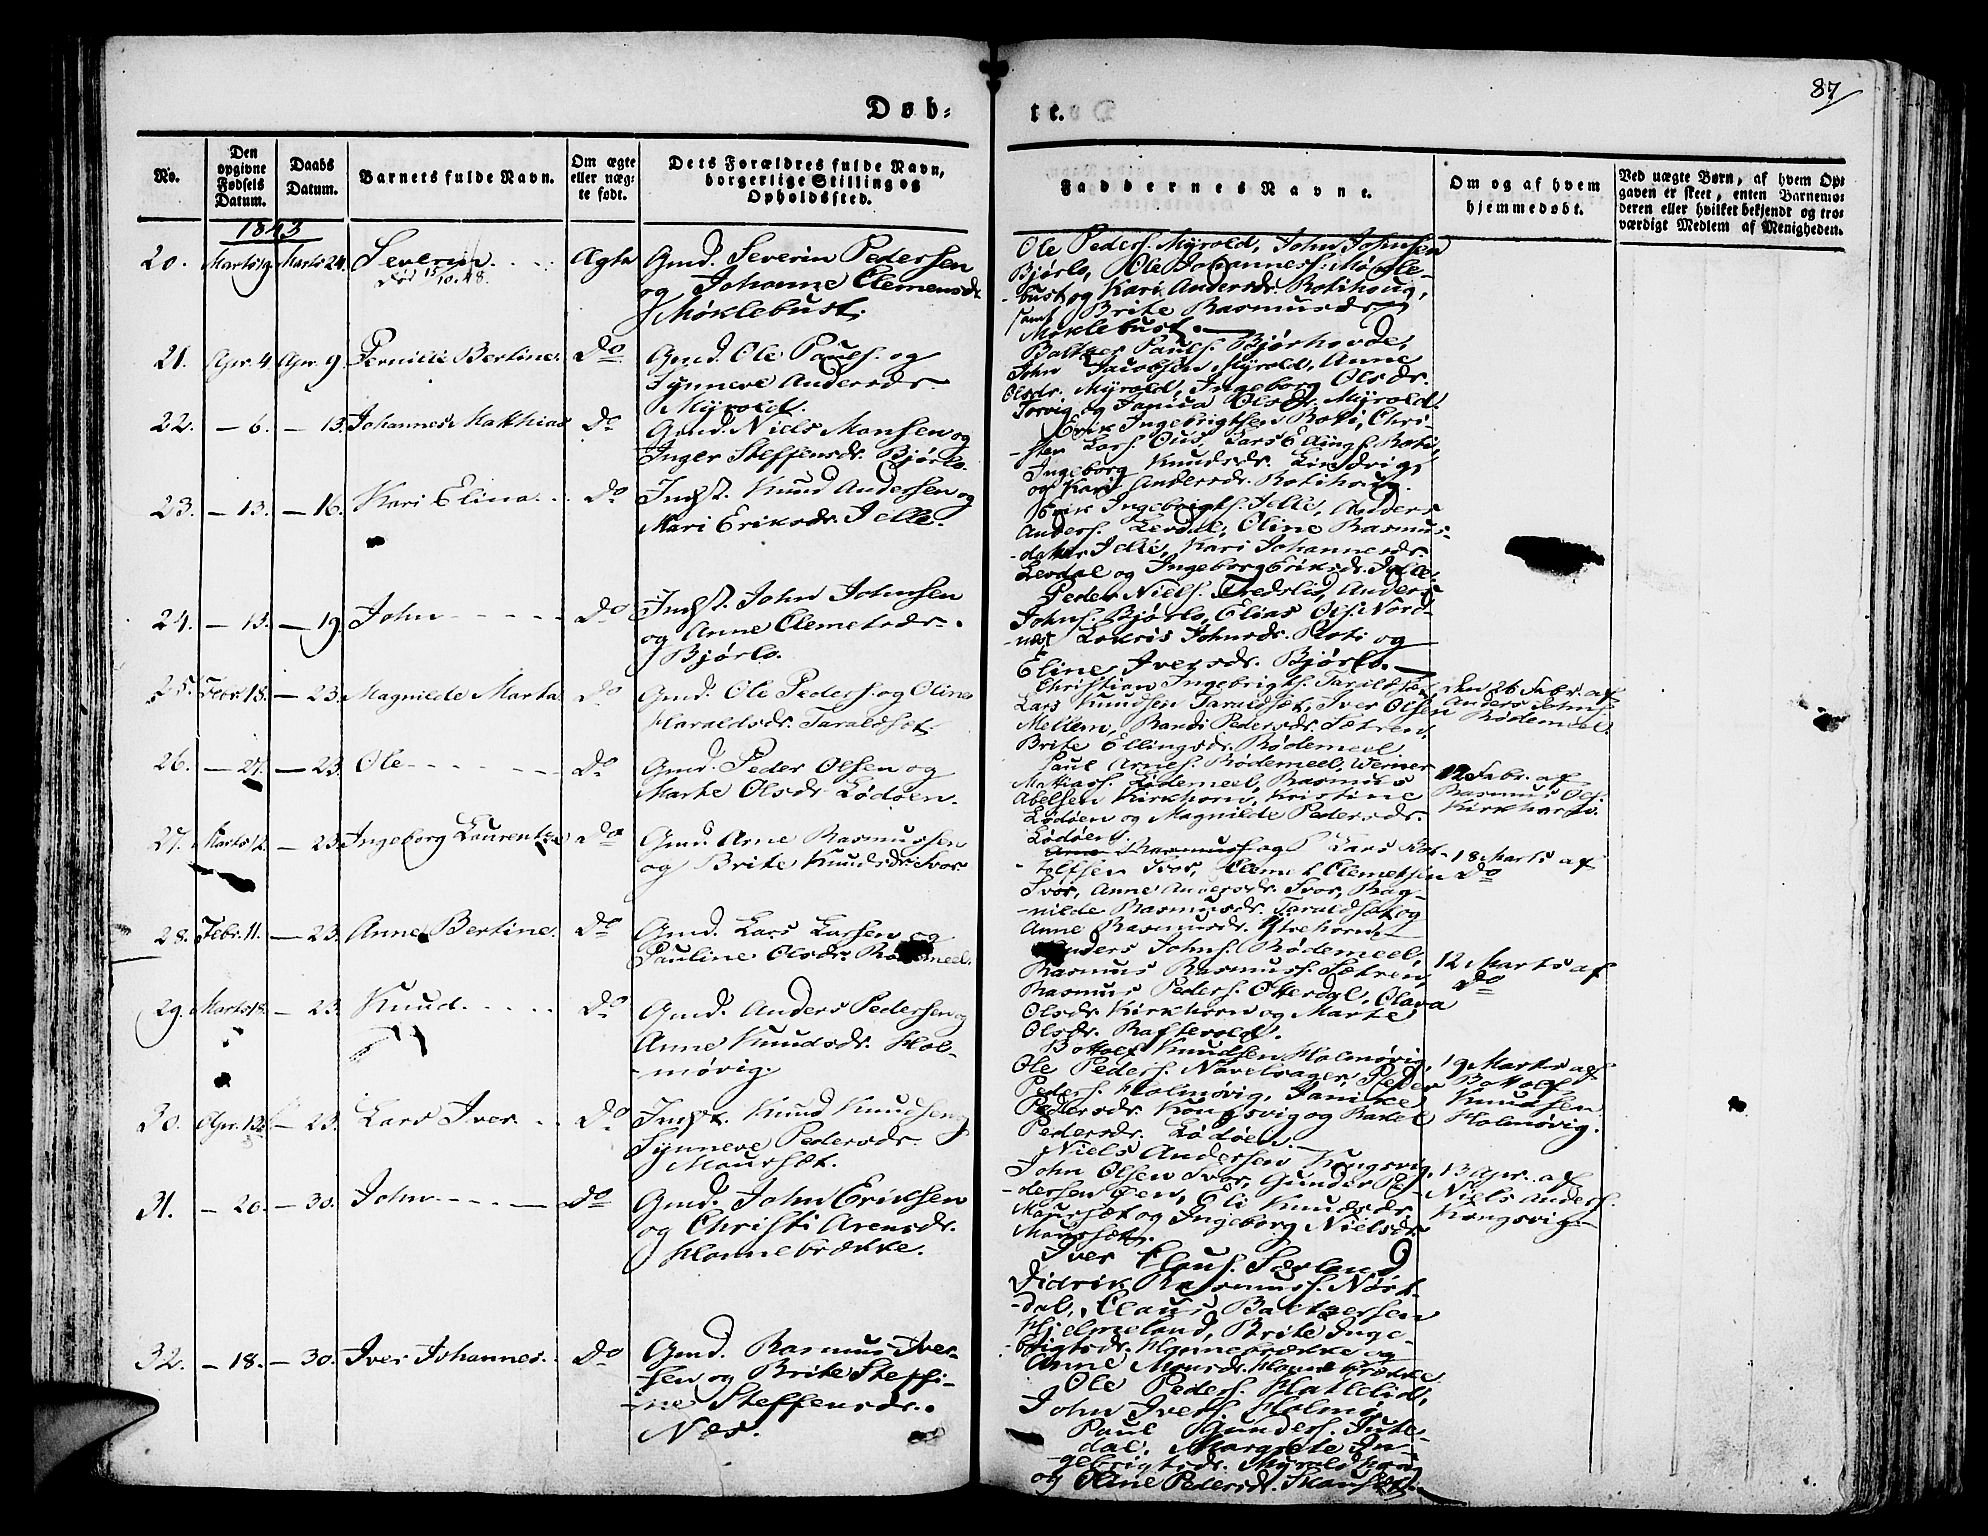 87
Døb-
te.
No.
Den opgivne Fødsels Datum.
Daabs Datum.
Barnets fulde Navn.
Om ægte eller uægte født.
Dets Forældres fulde Navn, borgerlige Stilling og Opholdssted.
Faddernes Navne.
Om og af hvem hjemmedøbt.
Ved uægte Børn, af hvem Opgaven er skeet, enten Barnemoderen eller hvilket bekjendt og troværdigt Medlem af Menigheden.
1843
20. Marts 19. Marts 24. Severin Ægte Gmd. Severin Pedersen
død 15/10.48.
og Johanne Clemensdr.
Møklebust.
Ole Peders. Myrold, John Johnsen
Bjørlo, Ole Johanness. Møkle-
bust og Kari Andersdr. Rotihoug,
samt Brite Rasmusdr.
Møklebust.
21. Apr. 4. Apr. 9. Pernille Bertine. Do Gmd. Ole Pauls. og
Synneve Andersdr.
Myrold.
Baltzer Pauls. Bjørhovde,
John Jacobsen Myrold, Anne
Olsdr. Myrold, Ingeborg Olsdr.
Torvig og Janica Olsdr. Myrold.
22. — 6. — 13. Johannes Matthias Do Gmd. Niels Monsen og
Inger Steffensdr. Bjørlo.
Erik Ingebrigtsen Roti, Chri-
sten Lars. Ous, Lars Ellings. Roti,
Ingeborg Knudsdr. Lindvig
og Kari Andersdr. Rotihoug.
23. — 13. — 16. Kari Elina. Do Indst. Knud Andersen og
Mari Eriksdr. Jelle.
Erik Ingebrigts. Jelle, Anders
Anders. Levdal, Oline Rasmus-
datter Jelle, Kari Johannesdr.
Levdal og Ingeborg Eriksdr. Jelle.
24. — 13. — 19. John Do Indst. John Johnsen
og Anne Clemetsdr.
Bjørlo.
Peder Niels. Tredslid, Anders
Johns. Bjørlo, Elias Ols. Nord-
næs Lovris Johnsdr. Roti og
Eline Iversdr. Bjørlo.
25. Febr. 18. — 23. Magnilde Marta Do Gmd. Ole Peders. og Olina
Haraldsdr. Taraldset.
Christian Ingebrigts. Taraldset,
Lars Knudsen Taraldset, Iver Olsen
Mellem, Randi Pedersdr. Sætren,
Brite Ellingsdr. Rødemeel.
den 26 Febr. af
Anders Johns.
Rødemeel.
26. — 27. — 23. Ole Do Gmd. Peder Olsen og
Marte Olsdr. Lødøen.
Paul Arnes. Rødemeel, Werner
Mattiass. Lødemeel, Rasmus
Abelsen Kirkhorn, Kristine
Lødøen og Magnilde Pedersdr.
Lødøen.
12 Febr. af
Rasmus Ols.
Kirkhorn.
27. Marts 12. — 23. Ingeborg Laurentze Do Gmd. Arne Rasmussen
og Brite Knudsdr. Svor.
Arne Rasmus og Lars Rot-
Svor, Clemet Clemetsen
Svor, Anne Andersdr. Svor, Rag-
nilde Rasmusdr. Taraldset og
Anne Rasmusdr. Ytrehorn.
18 Marts af
Do
28. Febr. 11. — 23. Anne Bertine. Do Gmd. Lars Larsen og
Pauline Olsdr. Rødemeel.
Anders Johns. Rødemeel,
Rasmus Rasmuss. Sætren,
Rasmus Peders. Otterdal, Olava
Olsdr. Kirkhorn og Marte
Olsdr. Raftevold.
12 Marts af
Do
29. Marts 18. — 23. Knud. Do Gmd. Anders Pedersen og
Anne Knudsdr. Hol-
møvig.
Bottolf Knudsen Holmøvig,
Ole Peders. Navelsager, Peder
Peders. Holmøvig, Janike
Pedersdr. Kongsvig og Rakel
Pedersdr. Lødøen.
19 Marts af
Bottolf
Knudsen
Holmøvig.
30. Apr. 13. — 23. Lars Iver Do Indst. Knud Knudsen og
Synneve Pedersdr.
Maurset.
Niels Andersen Kongsvig,
John Olsen Svor, Gunder Pe-
dersen Øen, Eli Knudsdr.
Maurset og Ingeborg Nielsdr.
Maurset.
13 Apr. af
Niels Anders.
Kongsvig.
31. — 20. — 30. John Do Gmd. John Eriksen
og Christi Arensdr.
Honnebrække.
Iver Claus. Særland
Didrik Rasmuss. Nøst-
dal, Claus Baltzersen
Hjelmeland, Brite Inge-
brigtsdr. Honnebrække og
Anne Monsdr. Honnebrække.
32. — 18. — 30. Iver Johannes. Do Gmd. Rasmus Iver-
sen og Brite Steffi-
ne Steffensdr.
Næs.
Ole Peders. Hatlelid,
John Ivers. Holmø,
Paul Gunders. Jute-
dal, Margrete In-
gebrigtsdr. Myrold
og Oline Pedersdr. Maurset.